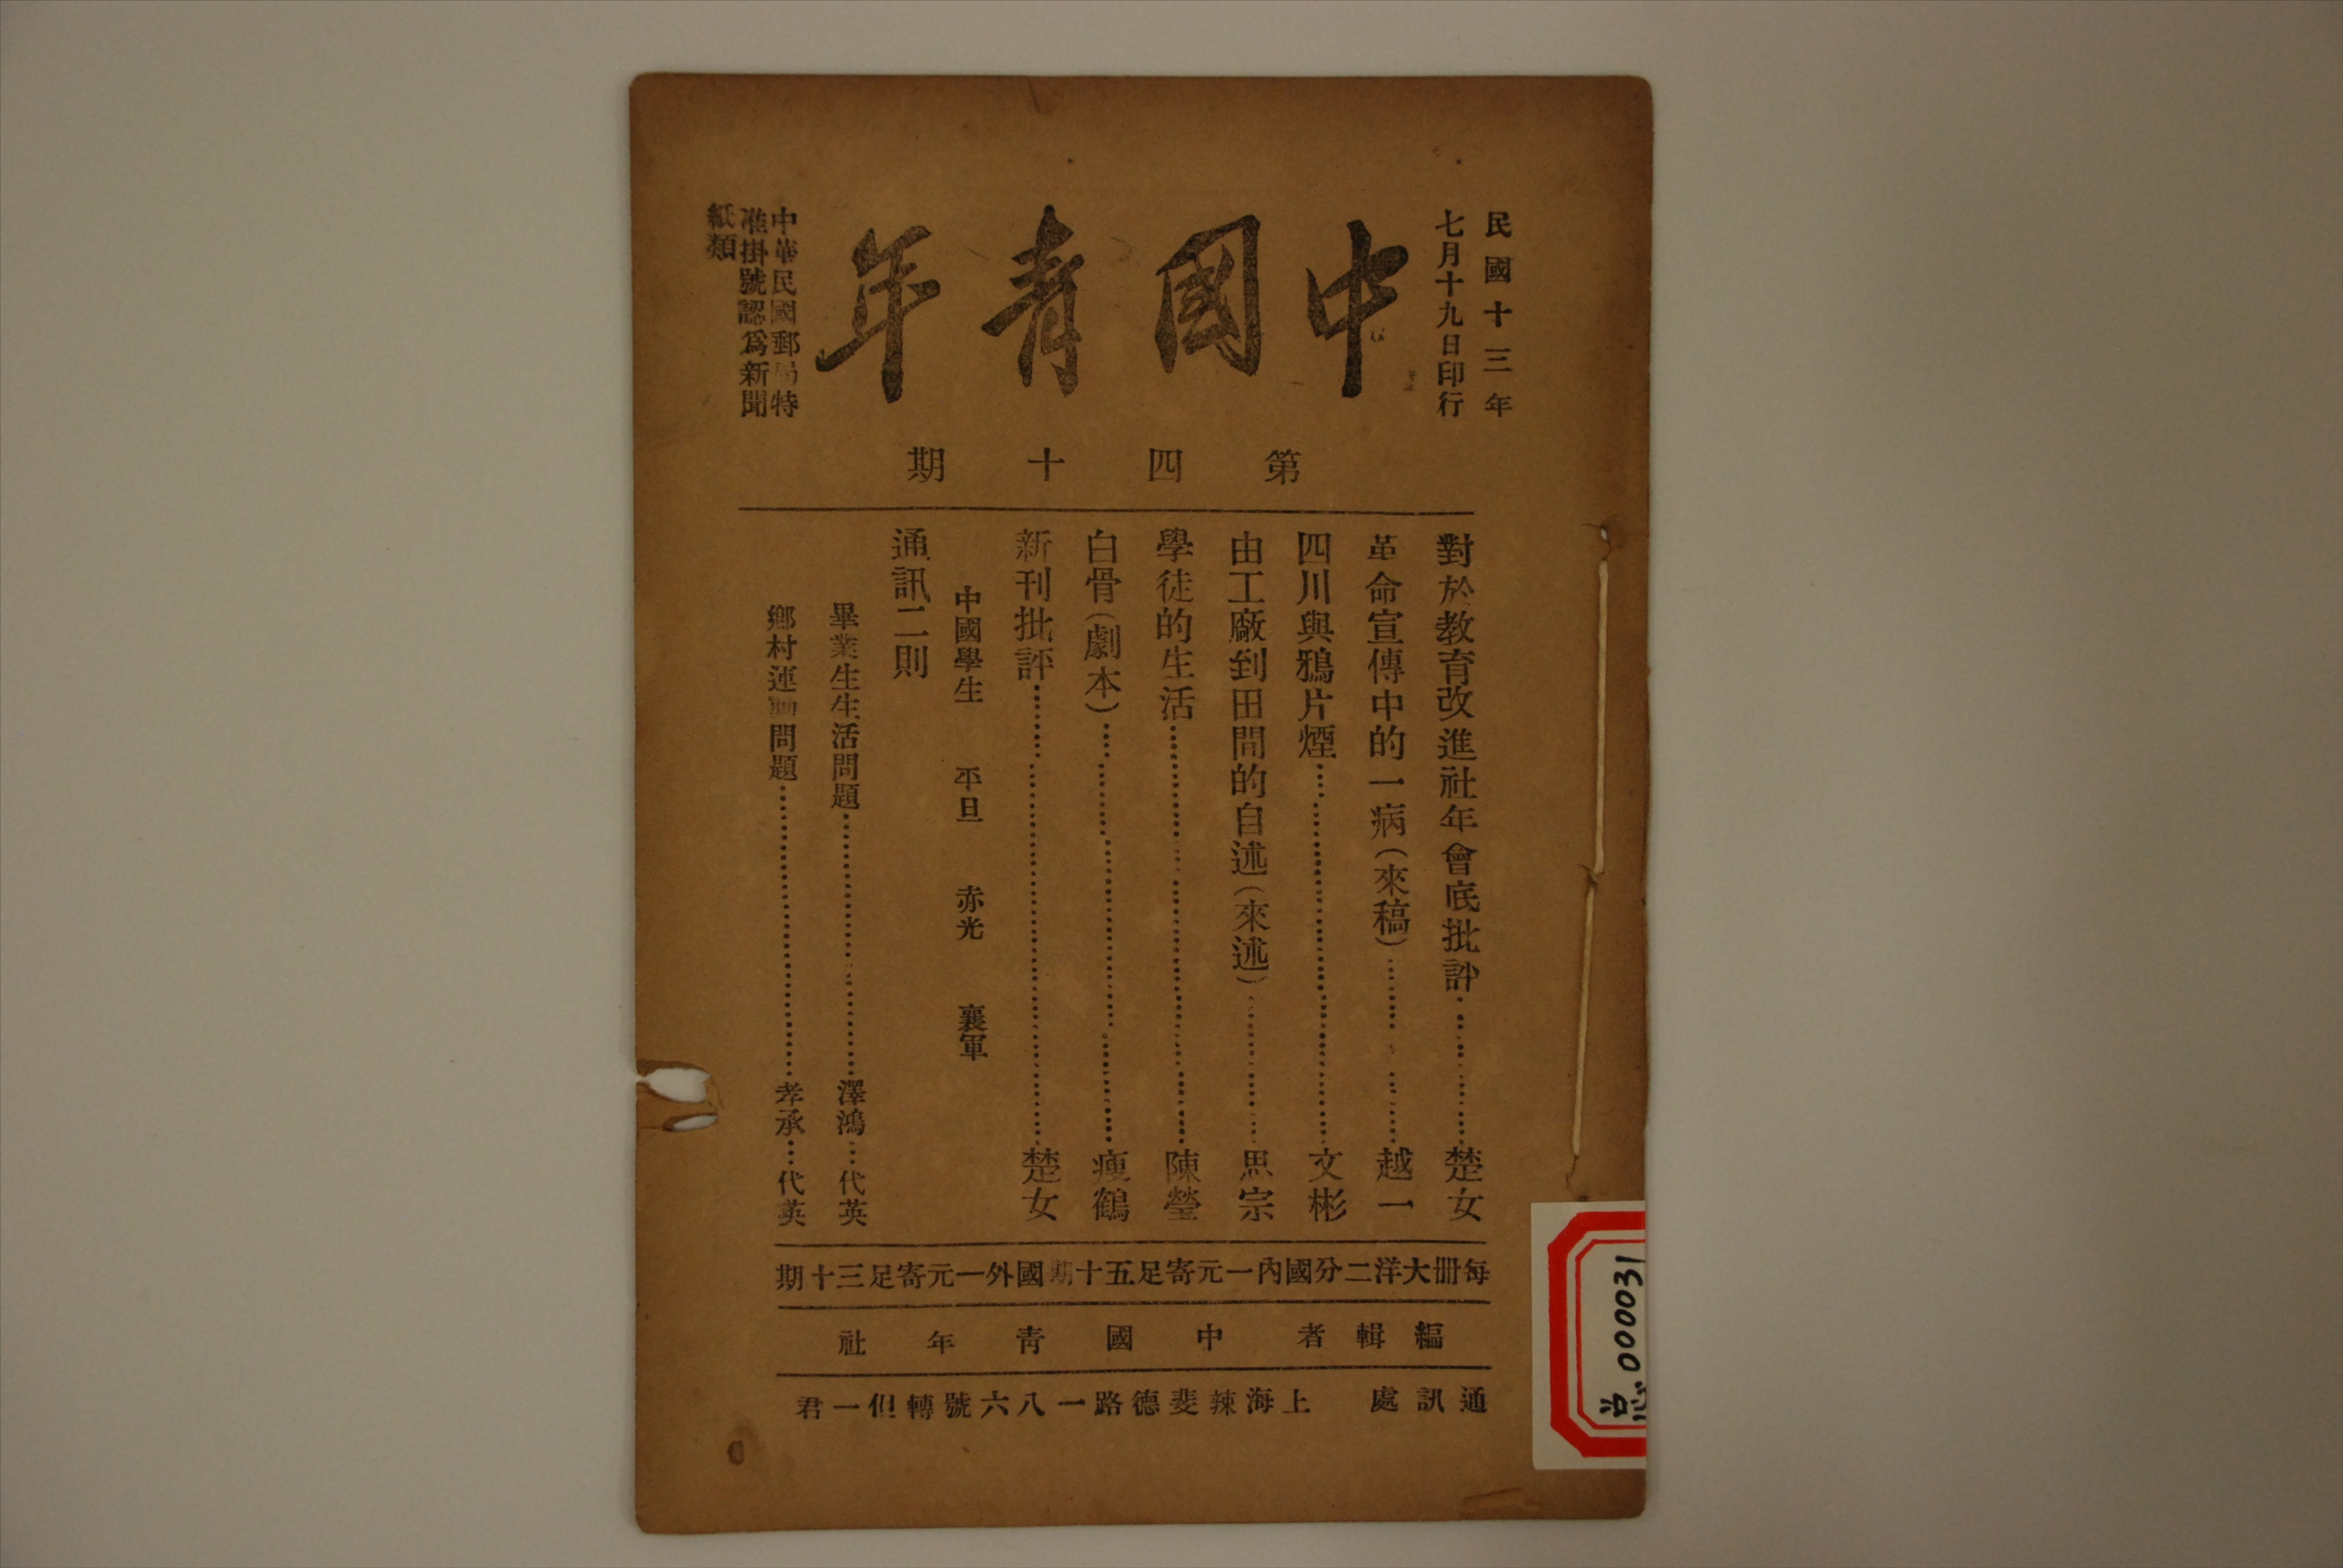 民國十三年
七月十九日印行
中國青年
中華民國郵局特
准掛號認爲新聞
紙類
第四十期
對於教育改進社年會底批評…………楚女
革命宣傳中的一病（來稿）…………越一
四川與鴉片煙…………文彬
由工廠到田間的自述（來述）…………思宗
學徒的生活…………陳瑩
白骨（劇本）…………瘦鶴
新刊批評…………楚女
中國學生 平旦 赤光 襄軍
通訊二則
畢業生生活問題…………澤鴻…代英
鄉村運動問題…………孝承…代英
每冊大洋二分國內一元寄足五十期國外一元寄足三十期
編輯者 中國青年社
通訊處 上海辣斐德路一八六號轉但一君
000031